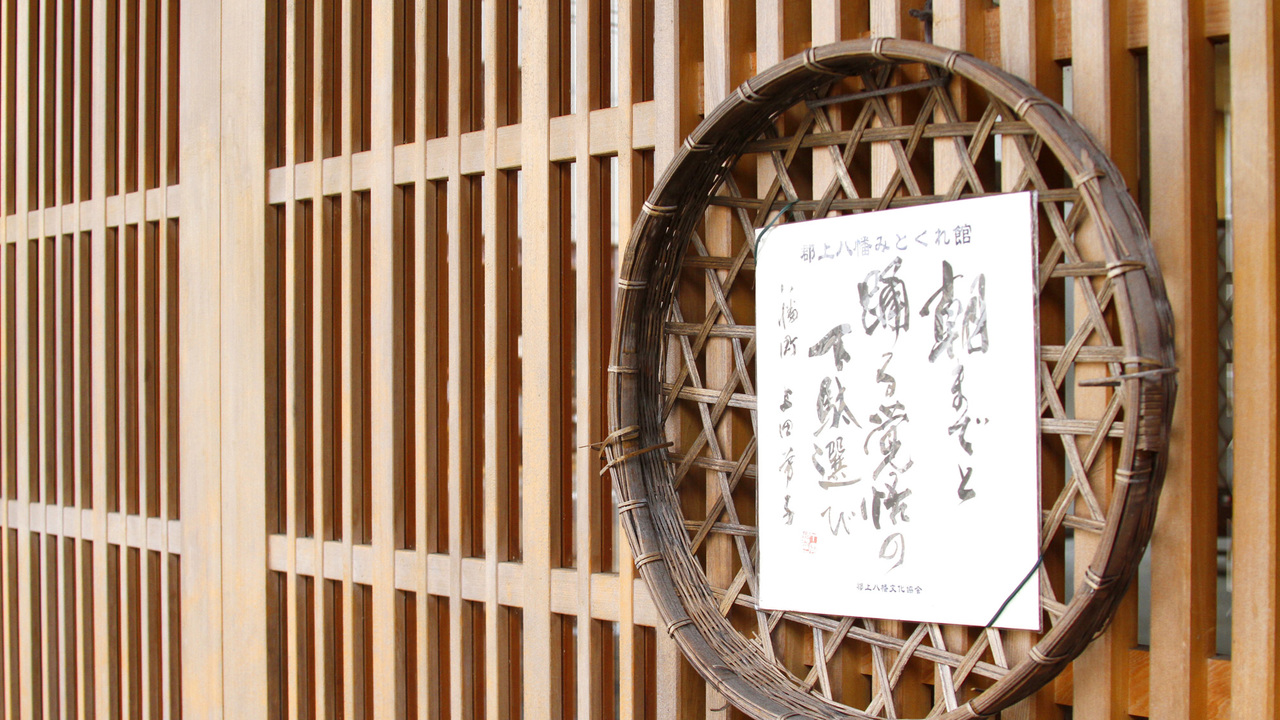 郡上八幡みとくれ館
朝までと
踊る覚悟の
下駄選び
八幡町
郡上八幡文化協会